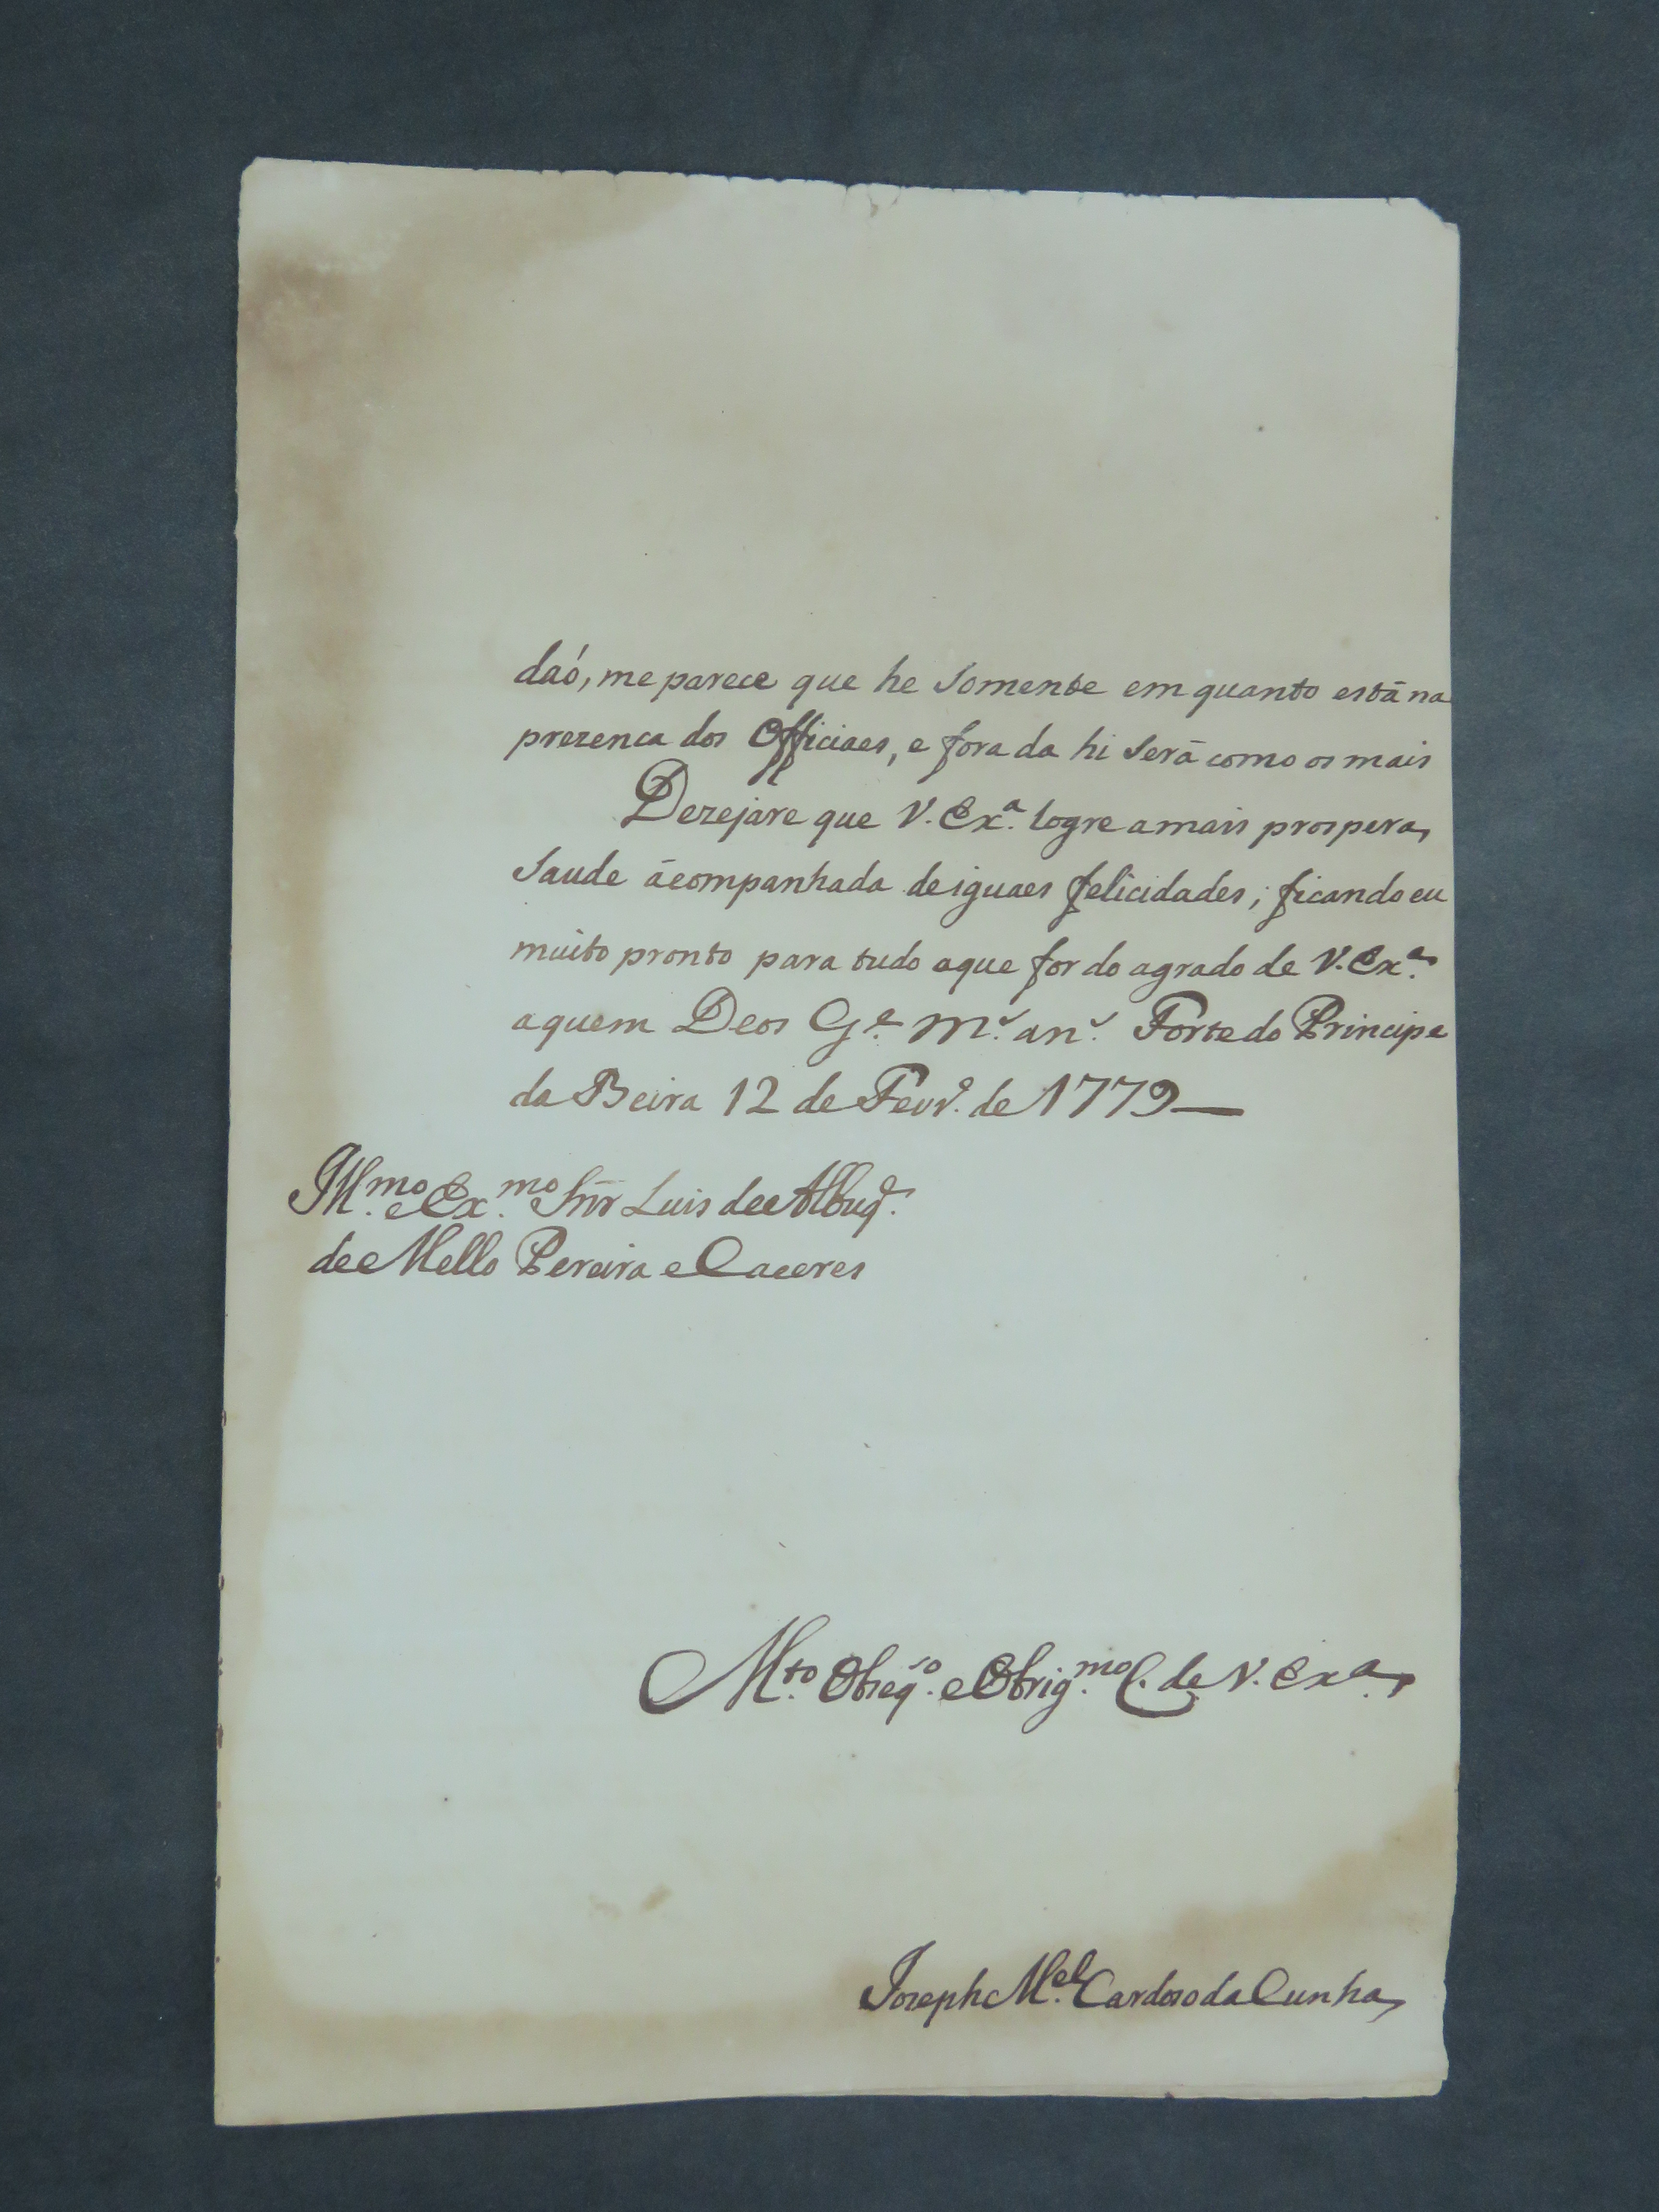 daó, me parece que he somente em quanto está na
prezenca dos Officiaes, e fora da hi será como os mais
Dezejare que V. Exª. logre a mais prospera
saude ácompanhada de iguaes felicidades; ficando eu
muito pronto para tudo aque for do agrado de V. Exª.
aquem Deos Gᵉ. mˢ. anˢ. Forte do Principe
da Beira 12 de Fevrº. de 1779—
Illᵐᵒ. e Exᵐᵒ. Snr̃ Luis de Albuqᵉ.
de Mello Pereira e Caceres
Mᵗᵒ. Obseqˢᵒ. e Obrigᵐᵒ. C. de V. Exª.
Joseph Mᵉˡ. Cardoso da Cunha